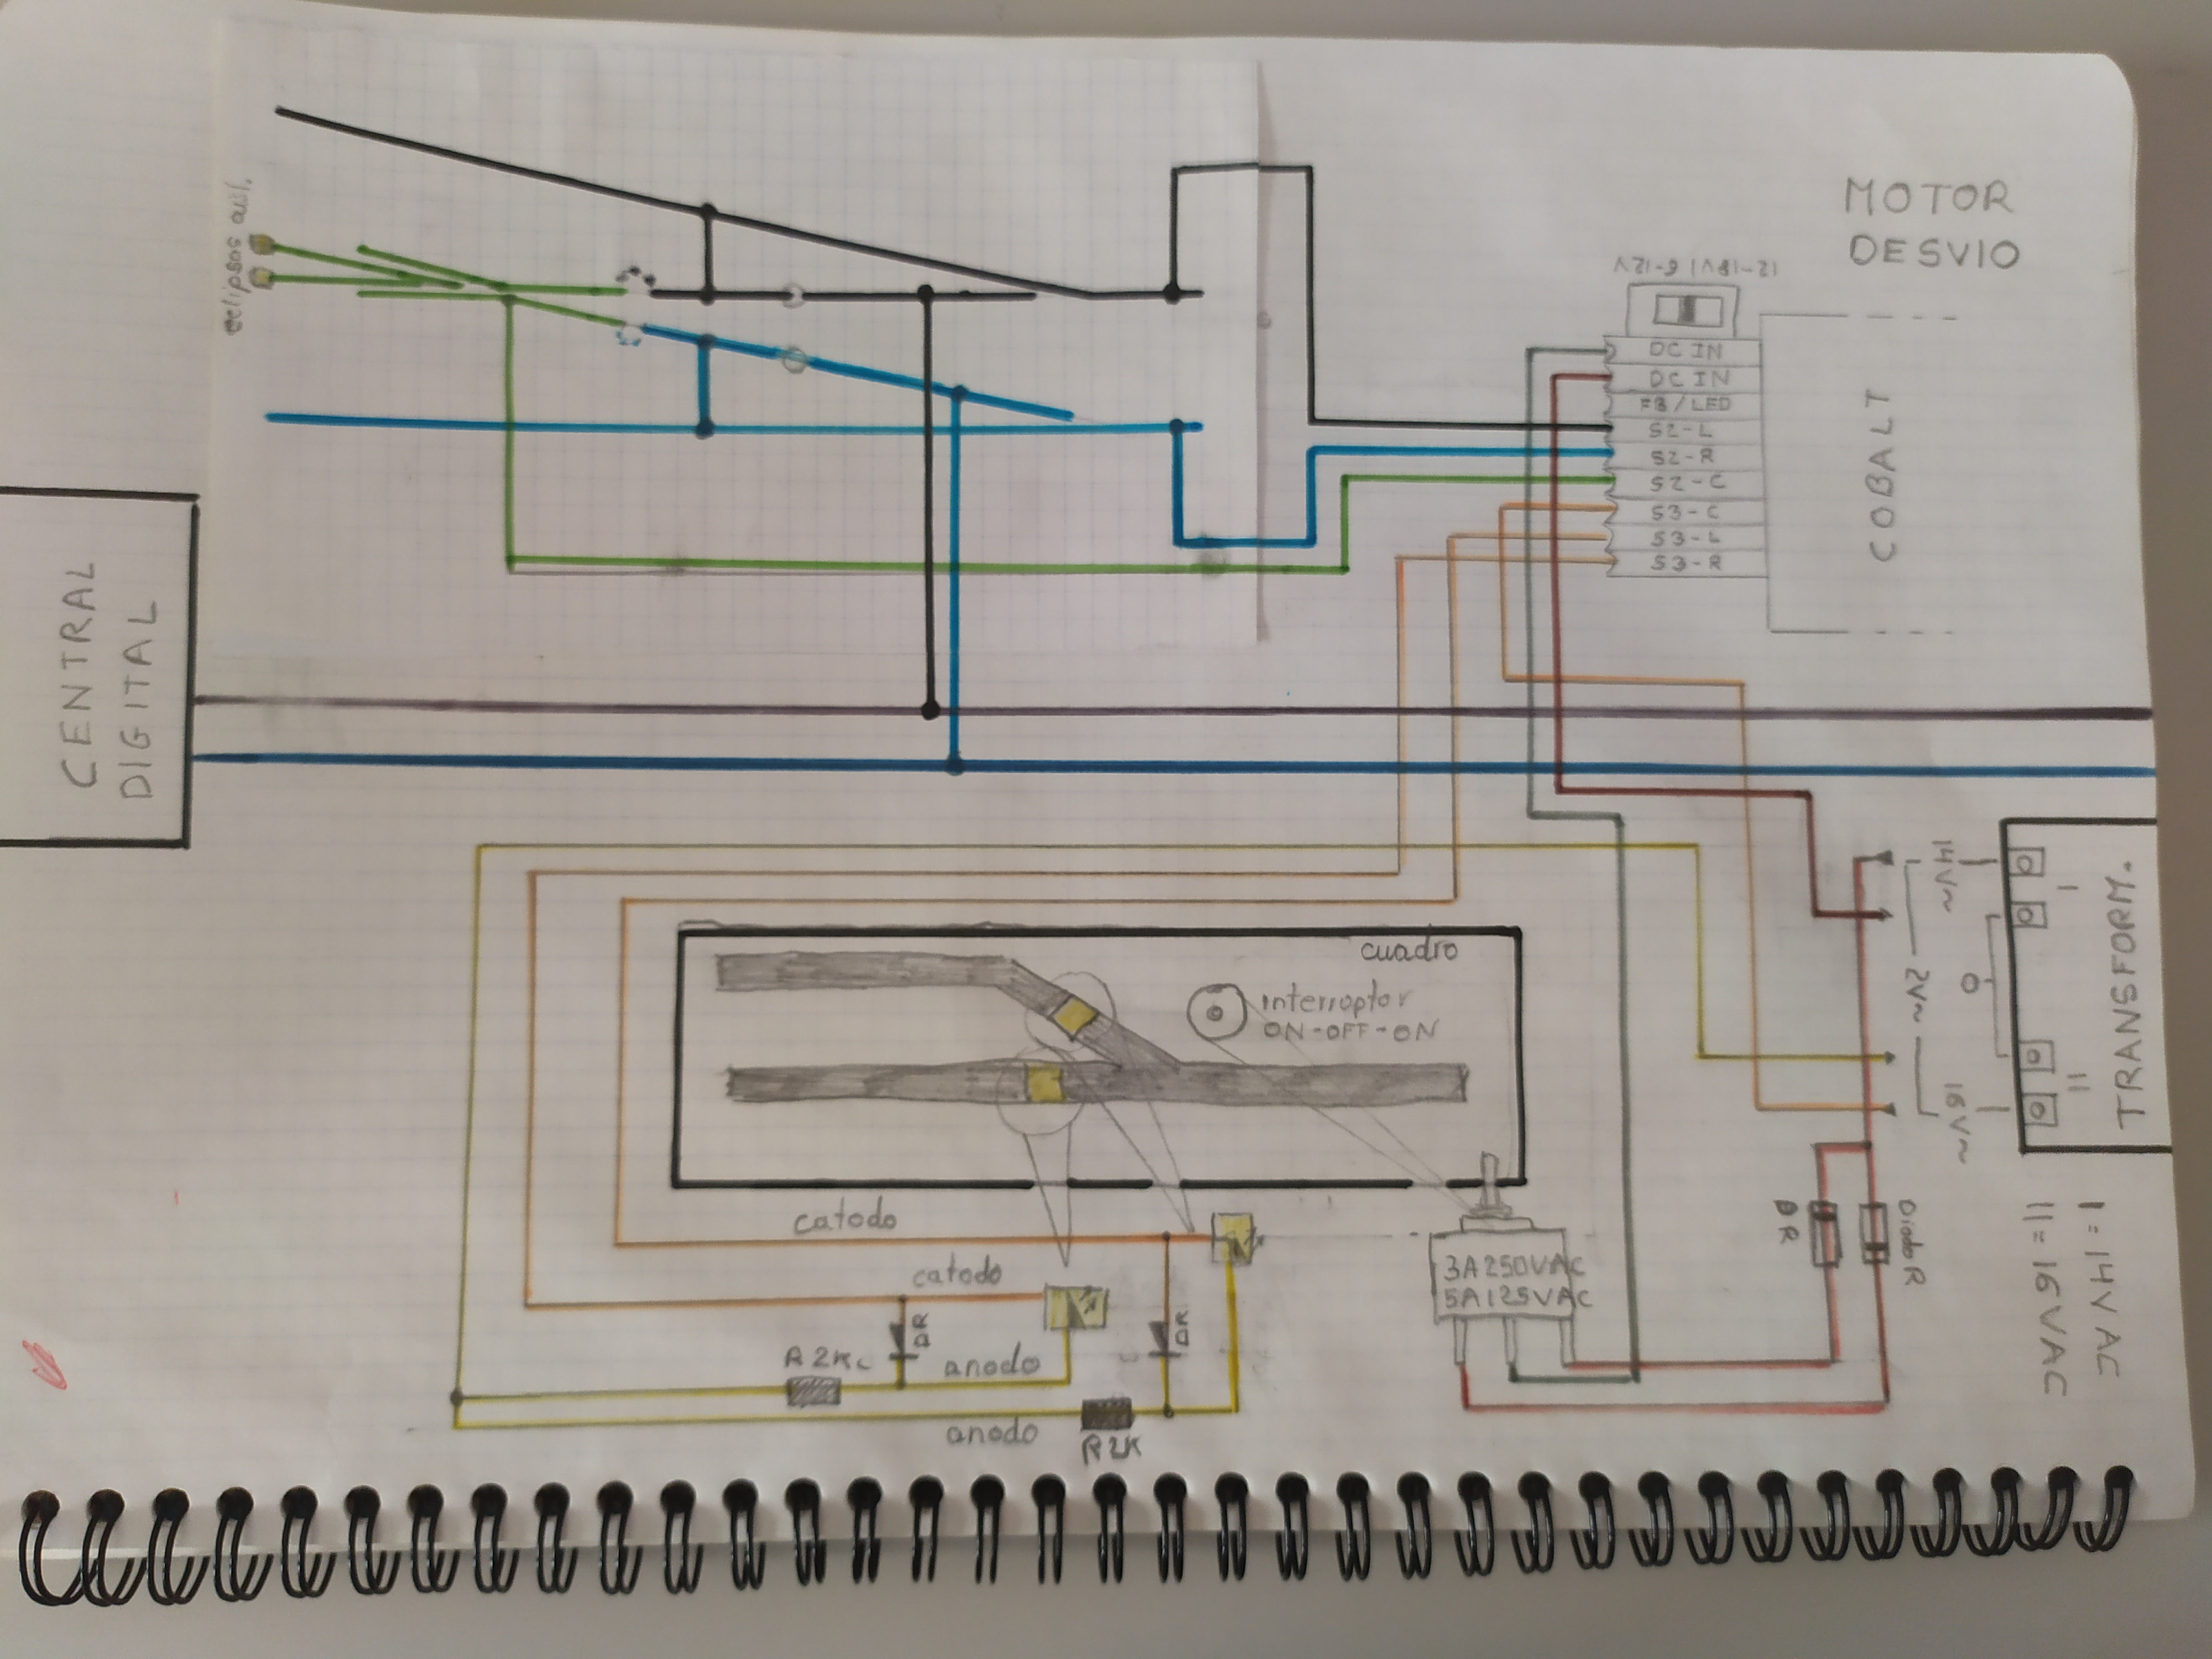 MOTOR
DESVIO
12-18V | 6-12V
DC IN
DC IN
FB/LED
S2-L
S2-R
S2-C
S3-C
S3-L
S3-R
COBALT
eclipsas
CENTRAL
DIGITAL
TRANSFORM.
I
II
14V~
0
2V~
16V~
I = 14V AC
II = 16VAC
cuadro
interruptor
ON-OFF-ON
catodo
catodo
DR
DR
R2K
anodo
anodo
R2K
3A250VAC
5A125VAC
DR
Diodo R